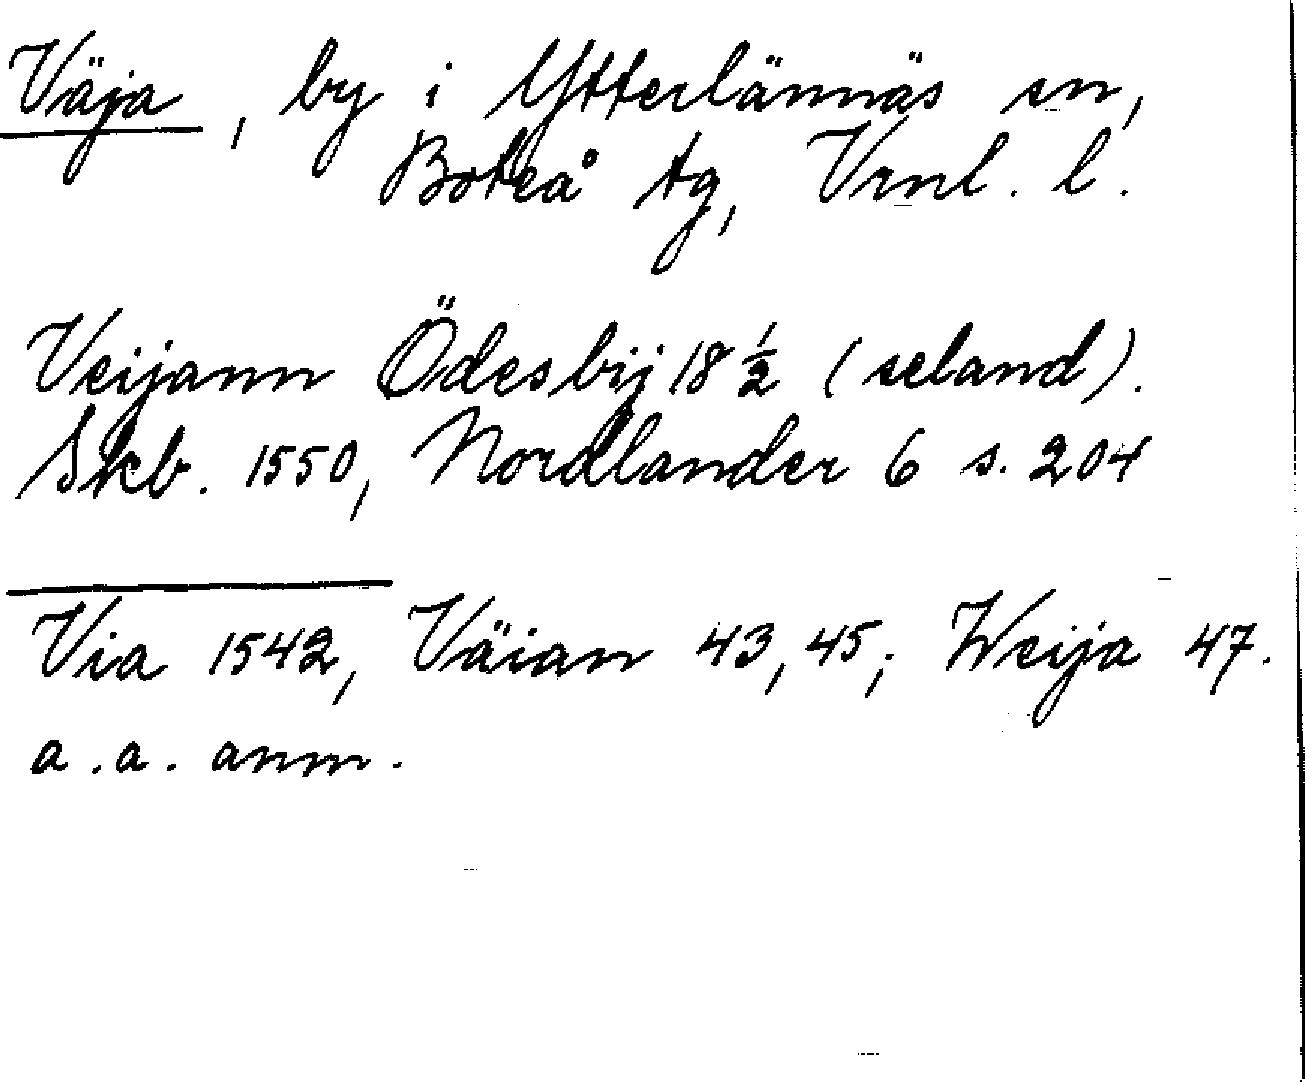 Väja, by i Ytterlännäs sn,
Boteå tg, Vrnl. l.
Veijann Ödesbÿ 18 1/2 (seland).
Skb. 1550, Nordlander 6 s. 204
Via 1542, Väian 43, 45; Weija 47.
a.a. anm.